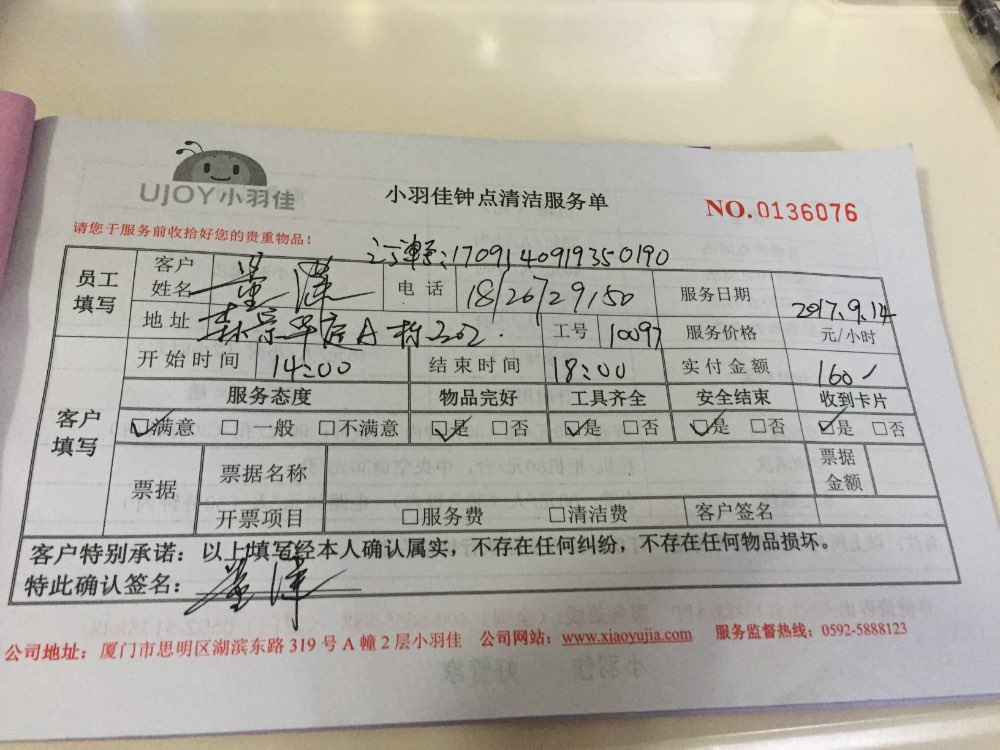 UJOY小羽佳
小羽佳钟点清洁服务单
NO.0136076
请您于服务前收拾好您的贵重物品！
订单号:1709140919350190
员工填写 客户姓名 电话 18/26/29150 服务日期 2017.9.14
地址 A栋202. 工号 10097 服务价格 元/小时
开始时间 14:00 结束时间 18:00 实付金额 160
客户填写 服务态度 物品完好 工具齐全 安全结束 收到卡片
☑满意 □一般 □不满意 ☑是 □否 ☑是 □否 ☑是 □否 ☑是 □否
票据 票据名称 票据金额
开票项目 □服务费 □清洁费 客户签名
客户特别承诺：以上填写经本人确认属实，不存在任何纠纷，不存在任何物品损坏。
特此确认签名：
公司地址：厦门市思明区湖滨东路319号A幢2层小羽佳 公司网站：www.xiaoyujia.com 服务监督热线：0592-5888123